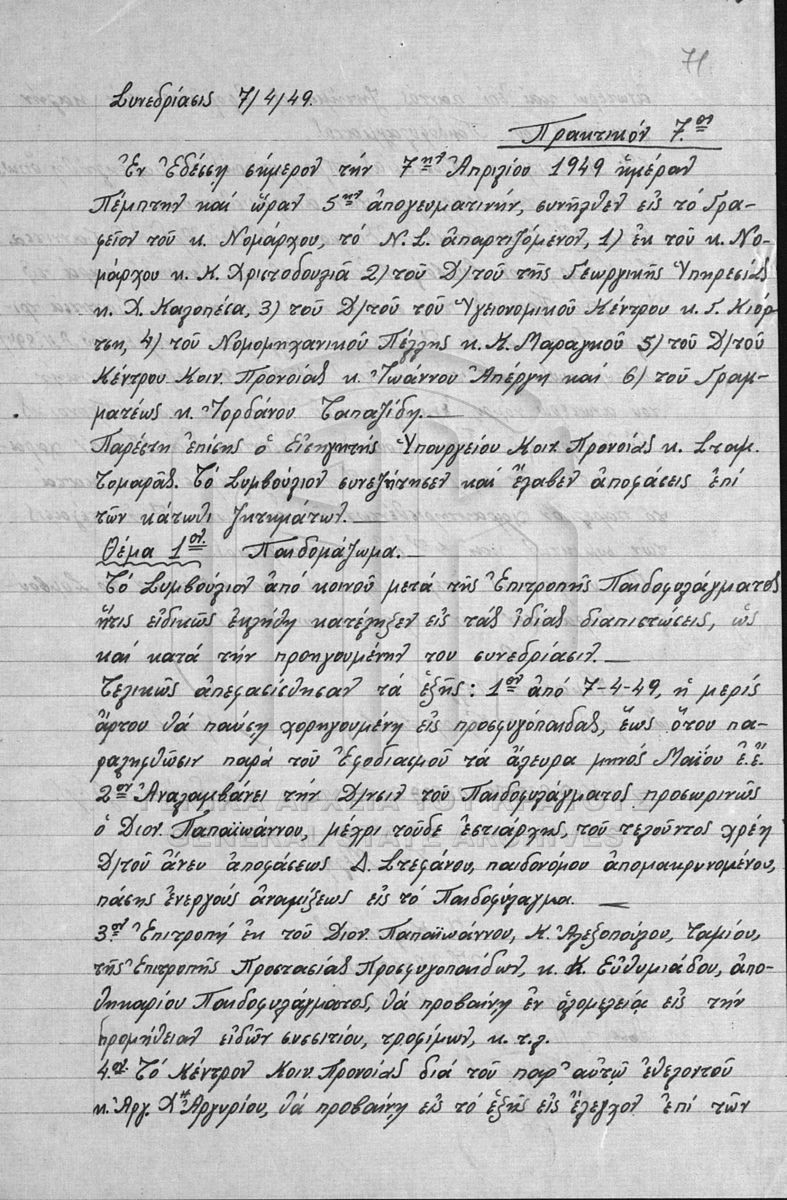 71
Συνεδρίασις 7/4/49.
Πρακτικόν 7.ον
Ἐν Ἐδέσσῃ σήμερον τὴν 7ην Ἀπριλίου 1949 ἡμέραν
Πέμπτην καί ὥραν 5ην ἀπογευματινήν, συνῆλθεν εἰς τό Γρα-
φεῖον τοῦ κ. Νομάρχου, τό Ν.Σ. ἀπαρτιζόμενον, 1) ἐκ τοῦ κ. Νο-
μάρχου κ. Κ. Χριστοδουλιᾶ 2) τοῦ Δ/τοῦ τῆς Γεωργικῆς Ὑπηρεσίας
κ. Χ. Καλοπέσα, 3) τοῦ Δ/τοῦ τοῦ Ὑγειονομικοῦ Κέντρου κ. Γ. Κιόρ-
τση, 4) τοῦ Νομομηχανικοῦ Πέλλης κ. Κ. Μαραγκοῦ 5) τοῦ Δ/τοῦ
Κέντρου Κοιν. Προνοίας κ. Ἰωάννου Ἀπέργη καί 6) τοῦ Γραμ-
ματέως κ. Ἰορδάνου Ταπαζίδη.
Παρέστη ἐπίσης ὁ Εἰσηγητής Ὑπουργείου Κοιν. Προνοίας κ. Σταμ.
Τομαρᾶς. Τό Συμβούλιον συνεζήτησεν καί ἔλαβεν ἀποφάσεις ἐπί
τῶν κάτωθι ζητημάτων.
Θέμα 1ον. Παιδομάζωμα.
Τό Συμβούλιον ἀπό κοινοῦ μετά τῆς Ἐπιτροπῆς Παιδοφυλάγματος
ἥτις εἰδικῶς ἐκλήθη κατέληξεν εἰς τάς ἰδίας διαπιστώσεις, ὡς
καί κατά τήν προηγουμένην του συνεδρίασιν.
Τελικῶς ἀπεφασίσθησαν τά ἑξῆς: 1ον ἀπό 7-4-49, ἡ μερίς
ἄρτου θά παύσῃ χορηγουμένη εἰς προσφυγόπαιδας, ἕως ὅτου πα-
ραληφθῶσιν παρά τοῦ Ἐφοδιασμοῦ τά ἄλευρα μηνός Μαΐου ἐ.ἔ.
2ον Ἀναλαμβάνει τήν Δ/νσιν τοῦ Παιδοφυλάγματος προσωρινῶς
ὁ Διον. Παπαϊωάννου, μέχρι τοῦδε ἑστιάρχης, τοῦ τελοῦντος χρέη
Δ/τοῦ ἄνευ ἀποφάσεως Δ. Στεφάνου, παιδονόμου ἀπομακρυνομένου,
πάσης ἐνεργοῦς ἀναμίξεως εἰς τό Παιδοφύλαγμα.
3ον Ἐπιτροπή ἐκ τοῦ Διον. Παπαϊωάννου, Κ. Ἀλεξοπούλου, Ταμίου,
τῆς Ἐπιτροπῆς Προστασίας Προσφυγοπαίδων, κ. Κ. Εὐθυμιάδου, ἀπο-
θηκαρίου Παιδοφυλάγματος, θά προβαίνῃ ἐν ὁλομελείᾳ εἰς τήν
προμήθειαν εἰδῶν συσσιτίου, τροφίμων, κ.τ.λ.
4ον. Τό Κέντρον Κοιν. Προνοίας διά τοῦ παρ' αὐτῷ ἐθελοντοῦ
κ. Ἀργ. Χ" Ἀργυρίου, θά προβαίνῃ εἰς τό ἑξῆς εἰς ἔλεγχον ἐπί τῶν
GENERAL STATE ARCHIVES